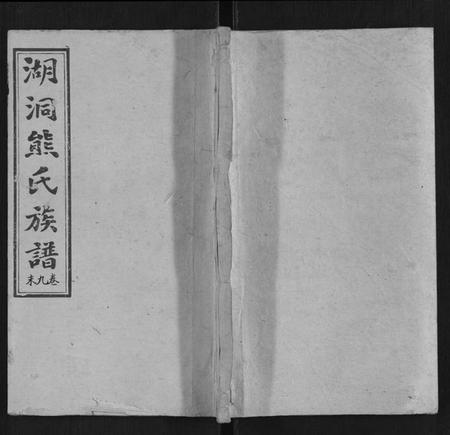 湖洞熊氏族譜
卷九末